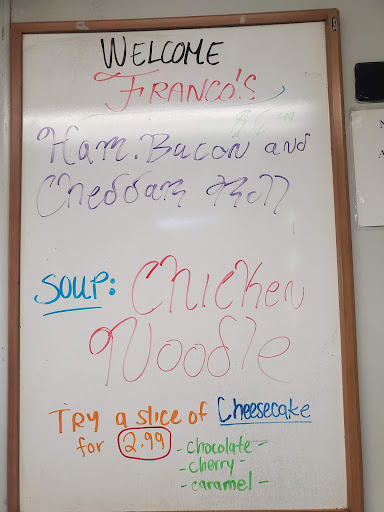 WELCOME
FRANCO'S
Ham. Bacon and
Cheddar Roll
SOUP: Chicken
Noodle
TRY a slice of Cheesecake
for 2.99 - chocolate -
- cherry -
- caramel -